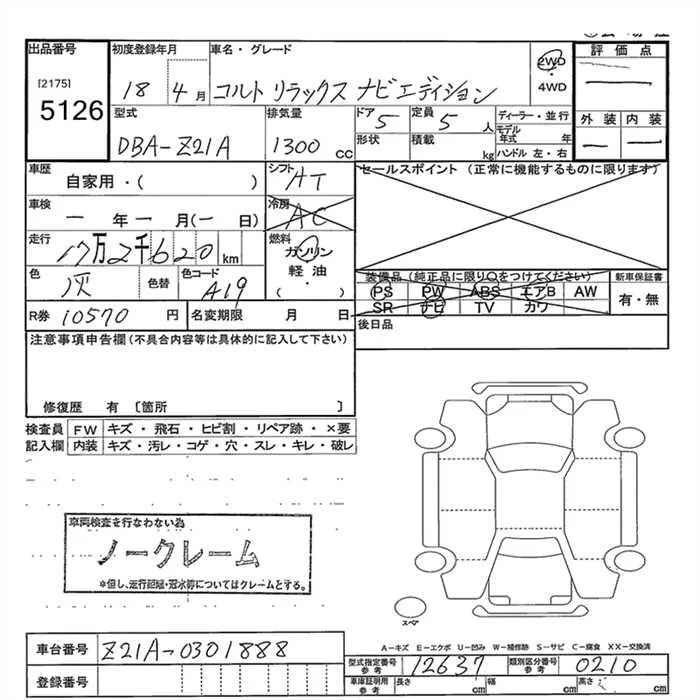 出品番号 初度登録年月 車名・グレード 評価点
[2175] 5126
18 4月 コルト リラックス ナビエディション 2WD・4WD
型式 排気量 ドア 定員 ディーラー・並行 外装 内装
DBA-Z21A 1300 cc 5 5人
モデル年式 年
形状 積載 kg ハンドル 左・右
車歴 自家用・( ) シフト AT セールスポイント (正常に機能するものに限ります)
車検 一年一月(一日) 冷房 AC
走行 17万2千620km 燃料 ガソリン
軽油・( )
色 灰 色替 色コード A19
装備品(純正品に限り○をつけてください) 新車保証書
PS PW ABS エアB AW 有・無
SR ナビ TV カワ
R券 10570円 名変期限 月 日 後日品
注意事項申告欄(不具合内容等は具体的に記入して下さい)
修復歴 有 〔箇所 〕
検査員 FW キズ・飛石・ヒビ割・リペア跡・×要
記入欄 内装 キズ・汚レ・コゲ・穴・スレ・キレ・破レ
車両検査を行なわない為
ノークレーム
※但し、走行記録・冠水等についてはクレームとする。
スペア
A-キズ E-エクボ U-凹み W-補修跡 S-サビ C-腐食 XX-交換済
車台番号 Z21A-0301888 型式指定番号 参考 12637 類別区分番号 参考 0210
登録番号 車庫証明用 参考 長さ cm 幅 cm 高さ cm